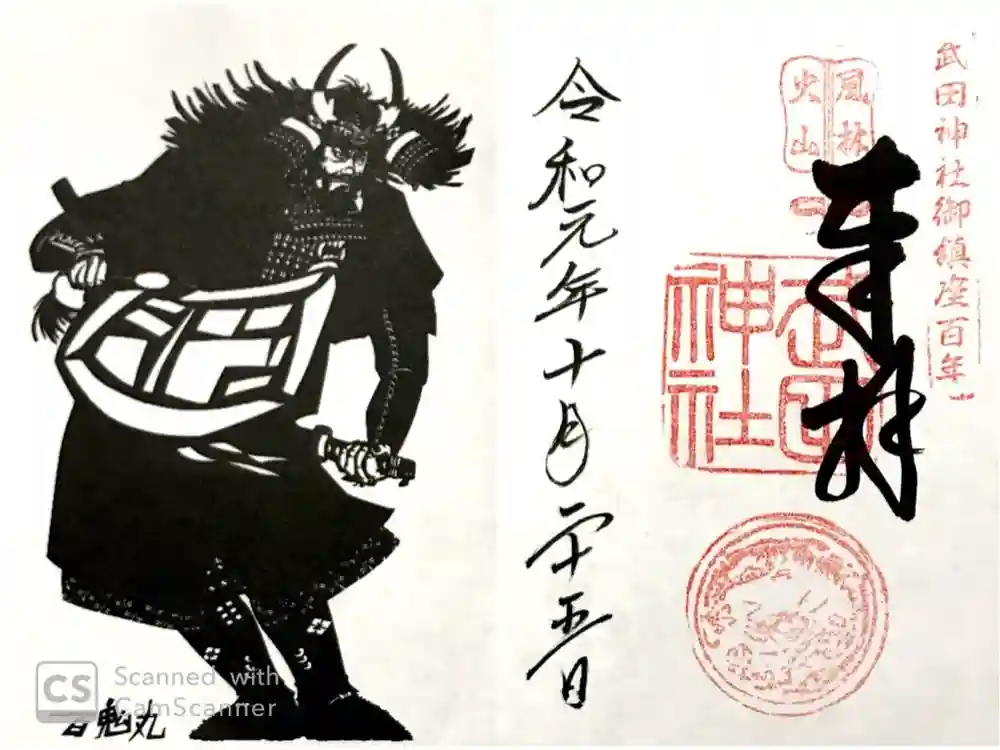 武田神社御鎮座百年
風林
火山
奉拝
武田
神社
令和元年十月二十五日
百鬼丸
CS Scanned with
CamScanner